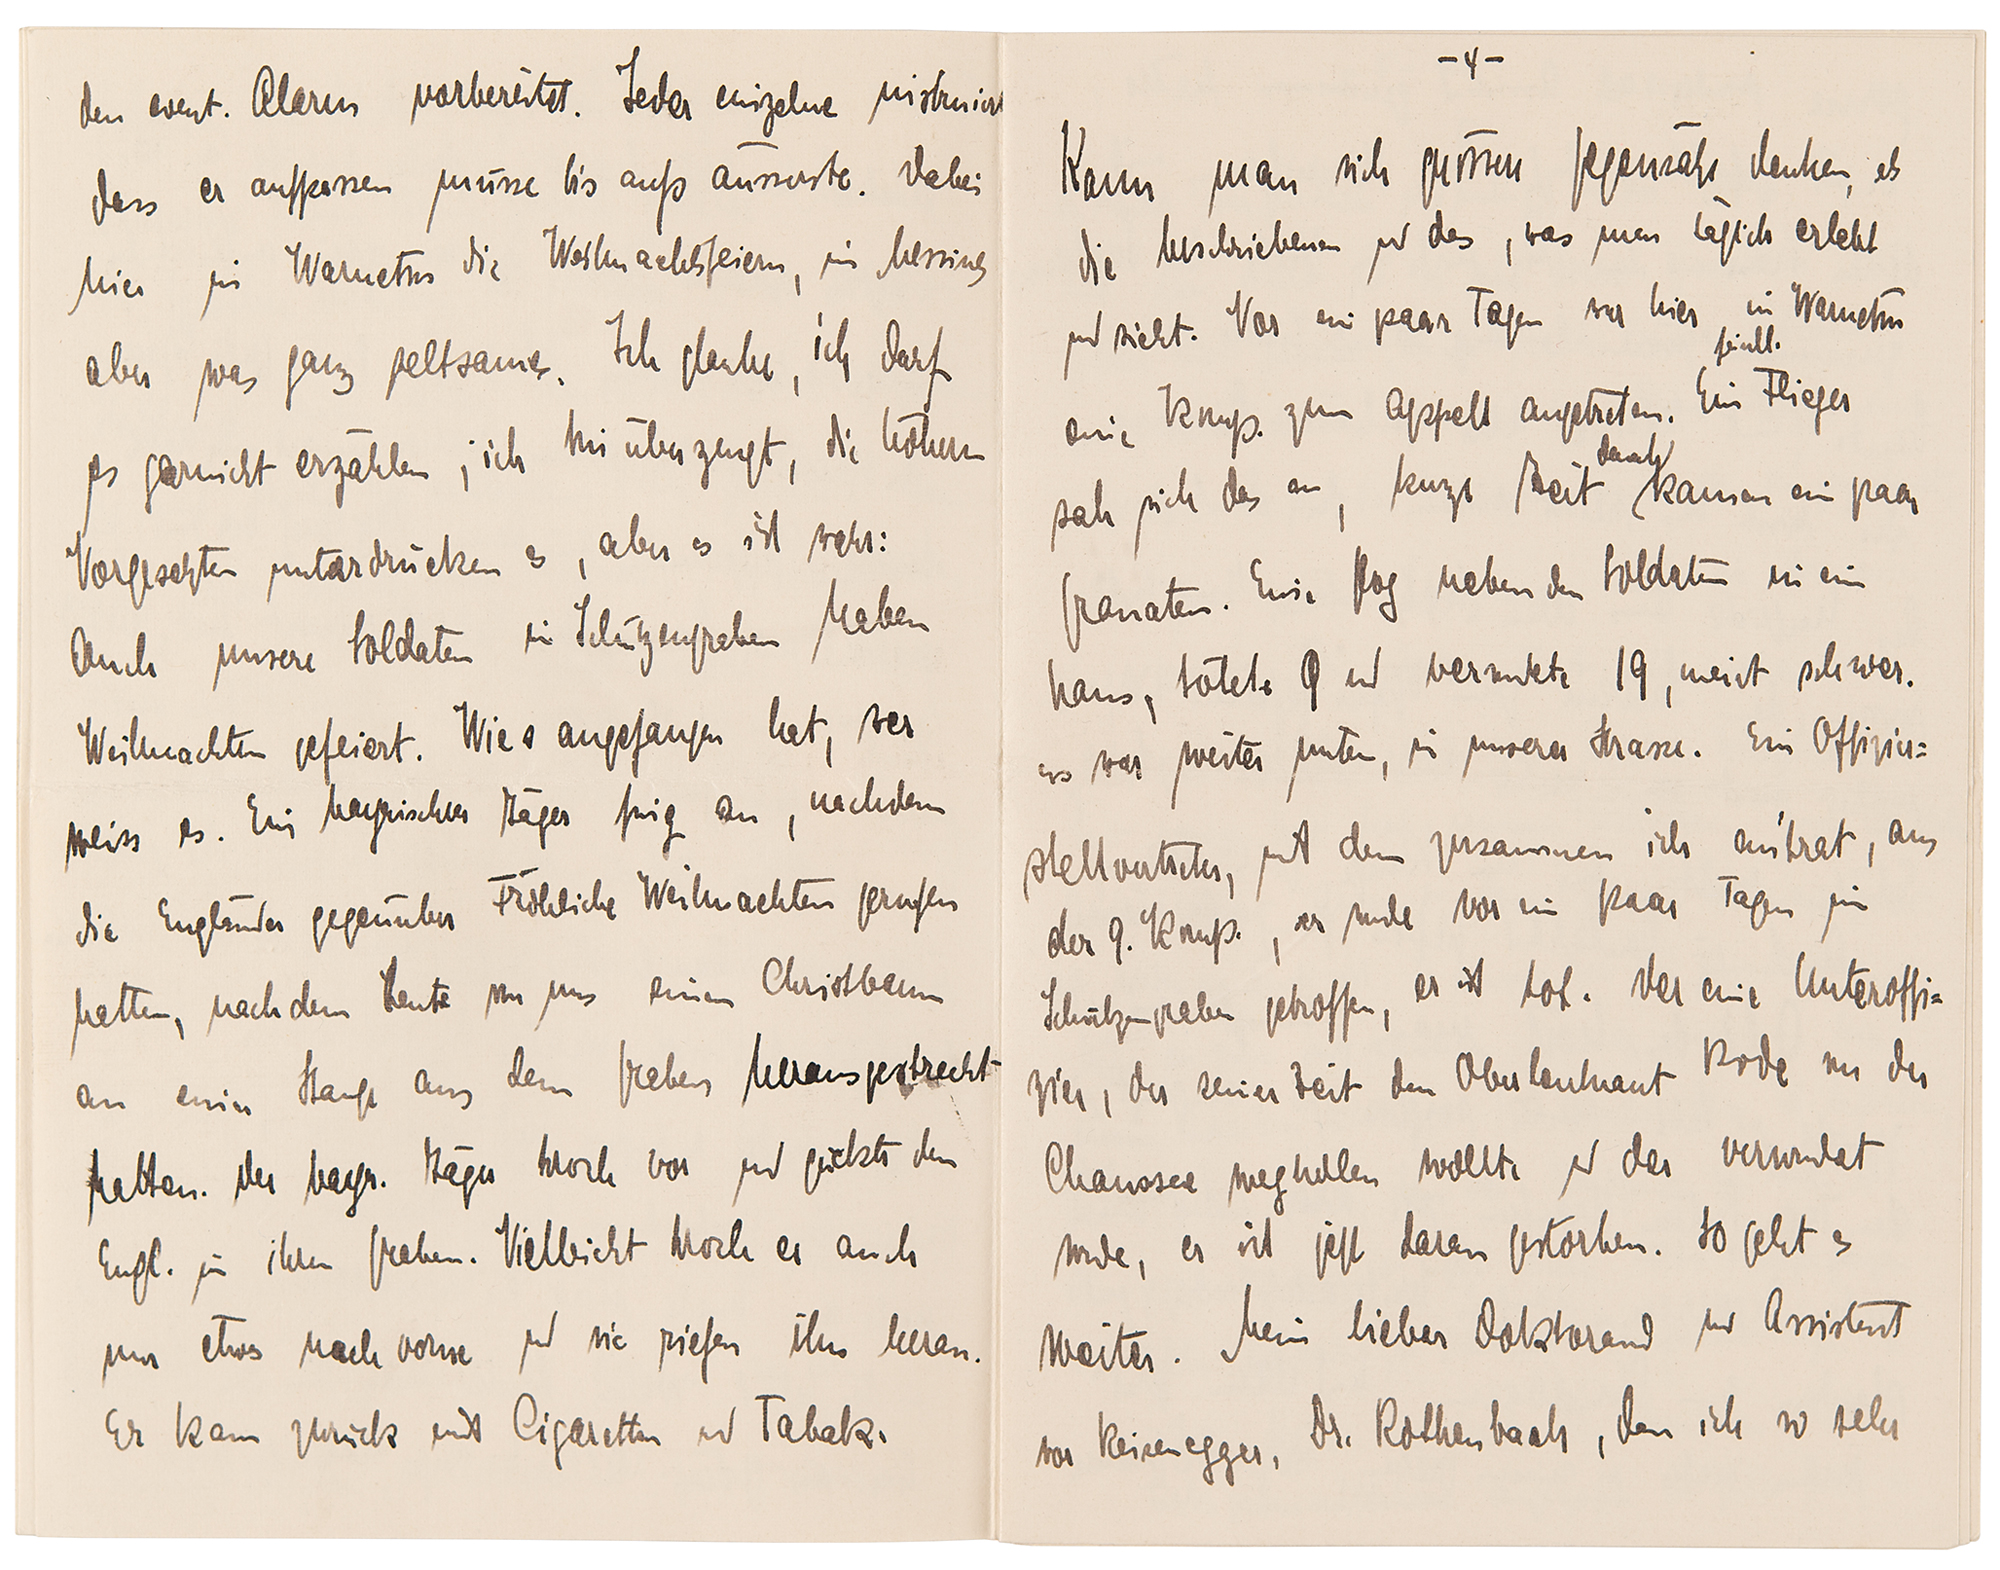 den event. Alarm vorbereitet. Jeder einzelne instruiert
dass er aufpassen müsse bis aufs äusserste. Dabei
hier in Warneton die Weihnachtsfeiern, in Messines
aber was ganz seltsames. Ich glaube, ich darf
es garnicht erzählen, ich bin überzeugt, die höhern
Vorgesetzten unterdrücken es, aber es ist wahr:
Auch unsere Soldaten im Schützengraben haben
Weihnachten gefeiert. Wie's angefangen hat, wer
weiss es. Ein bayrischer Jäger fing an, nachdem
die Engländer gegenüber Fröhliche Weihnachten gerufen
hatten, nachdem Leute von uns einen Christbaum
an einer Stange aus dem Graben herausgestreckt
hatten. Der bayr. Jäger kroch vor und guckte den
Engl. in ihren Graben. Vielleicht kroch er auch
nur etwas nach vorne und sie riefen ihn heran.
Er kam zurück mit Cigaretten und Tabak.
-4-
Kann man sich grössere Gegensätze denken, als
die beschriebenen und das, was man täglich erlebt
und sieht. Vor ein paar Tagen war hier in Warneton
eine Komp. zum Appell angetreten. Ein feindl. Flieger
sah sich das an, kurze Zeit danach kamen ein paar
Granaten. Eine flog neben den Soldaten in ein
Haus, tötete 9 und verwundete 19, meist schwer.
es war weiter unten, in unserer Strasse. Ein Offizier=
stellvertreter, mit dem zusammen ich eintrat, aus
der 9. Komp., er wurde vor ein paar Tagen im
Schützengraben getroffen, er ist tot. Der eine Unteroffi=
zier, der seiner Zeit den Oberleutnant Rode von der
Chaussee wegholen wollte und der verwundet
wurde, er ist jetzt daran gestorben. So geht es
weiter. Mein lieber Doktorand und Assistent
vor Reisenegger, Dr. Rothenbach, den ich so sehr